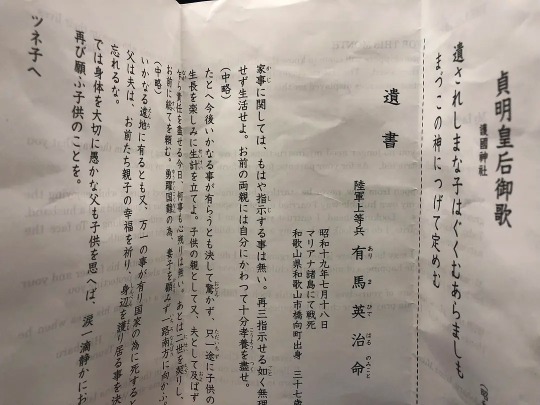 貞明皇后御歌
護國神社
遺されしまな子はぐくむあらましも
まづこの神につげて定めむ
遺書
陸軍上等兵 有馬英治命
昭和十九年七月十八日
マリアナ諸島にて戦死
和歌山県和歌山市橋向町出身 三十七
家事に関しては、もはや指示する事は無い。再三指示せる如く無理
せず生活せよ。お前の両親には自分にかわつて十分孝養を盡せ。
(中略)
たとへ今後いかなる事が有らうとも決して驚かず、只一途に子供の
生長を楽しみに生計を立てよ。子供の親として又、夫として及ばず
ながら責任を盡せる今日、何事も心残りは無い。あとは二世を契りし、
お前に総てを頼む。勇躍国難の為、妻子を顧みず一路南方に向かふ。
(中略)
いかなる遠地に有るとも又、万一の事が有り国家の為に死すると
父は夫は、お前たち親子の幸福を祈り、身辺を護り居る事を決
忘れるな。
では身体を大切に愚かな父も子供を思へば、涙一滴静かにお
再び願ふ子供のことを。
ツネ子へ